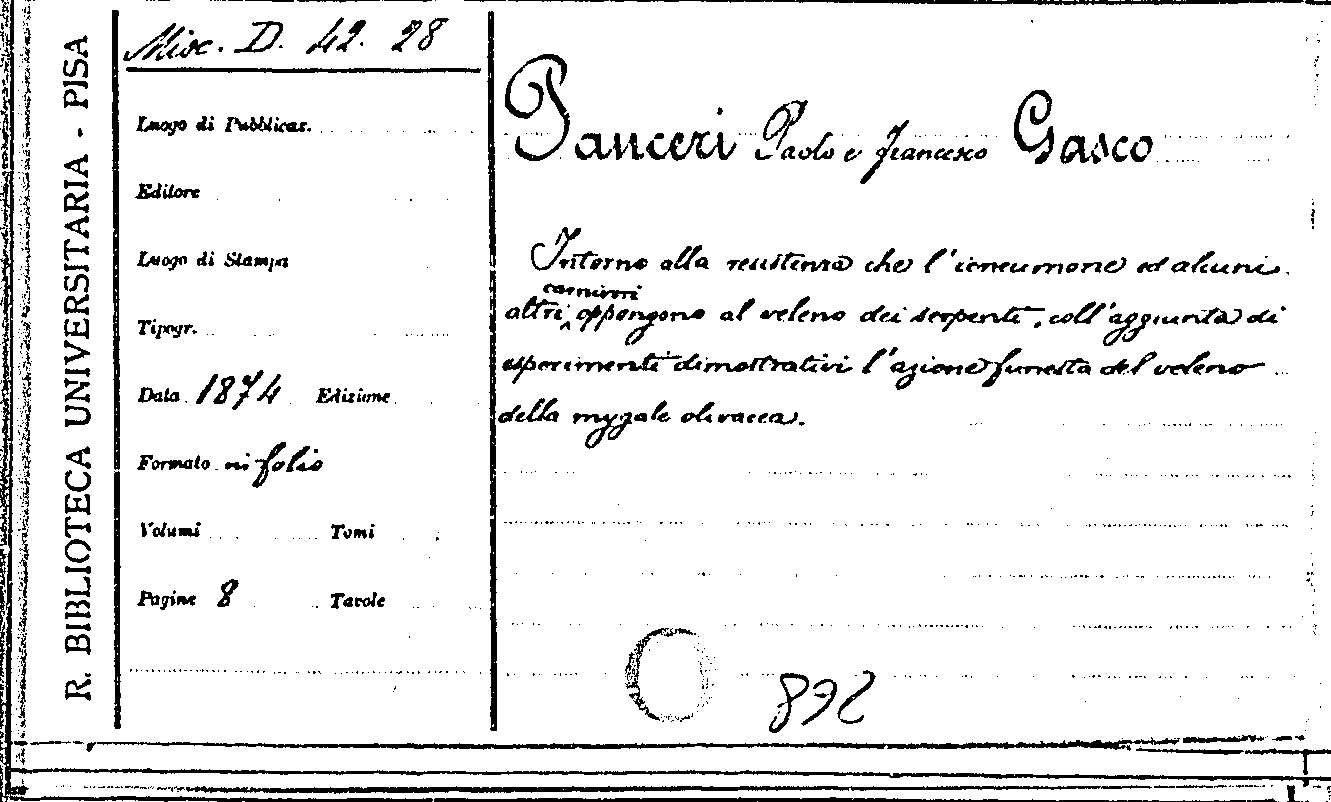 R. BIBLIOTECA UNIVERSITARIA - PISA
Misc. D. 42. 28
Luogo di Pubblicaz.
Editore
Luogo di Stampa
Tipogr.
Data 1874 Edizione
Formato in folio
Volumi Tomi
Pagine 8 Tavole
Panceri Paolo e Francesco Gasco
Intorno alla resistenza che l'icneumone ed alcuni
carnivori
altri oppongono al veleno dei serpenti, coll'aggiunta di
esperimenti dimostrativi l'azione funesta del veleno
della mygale olivacea.